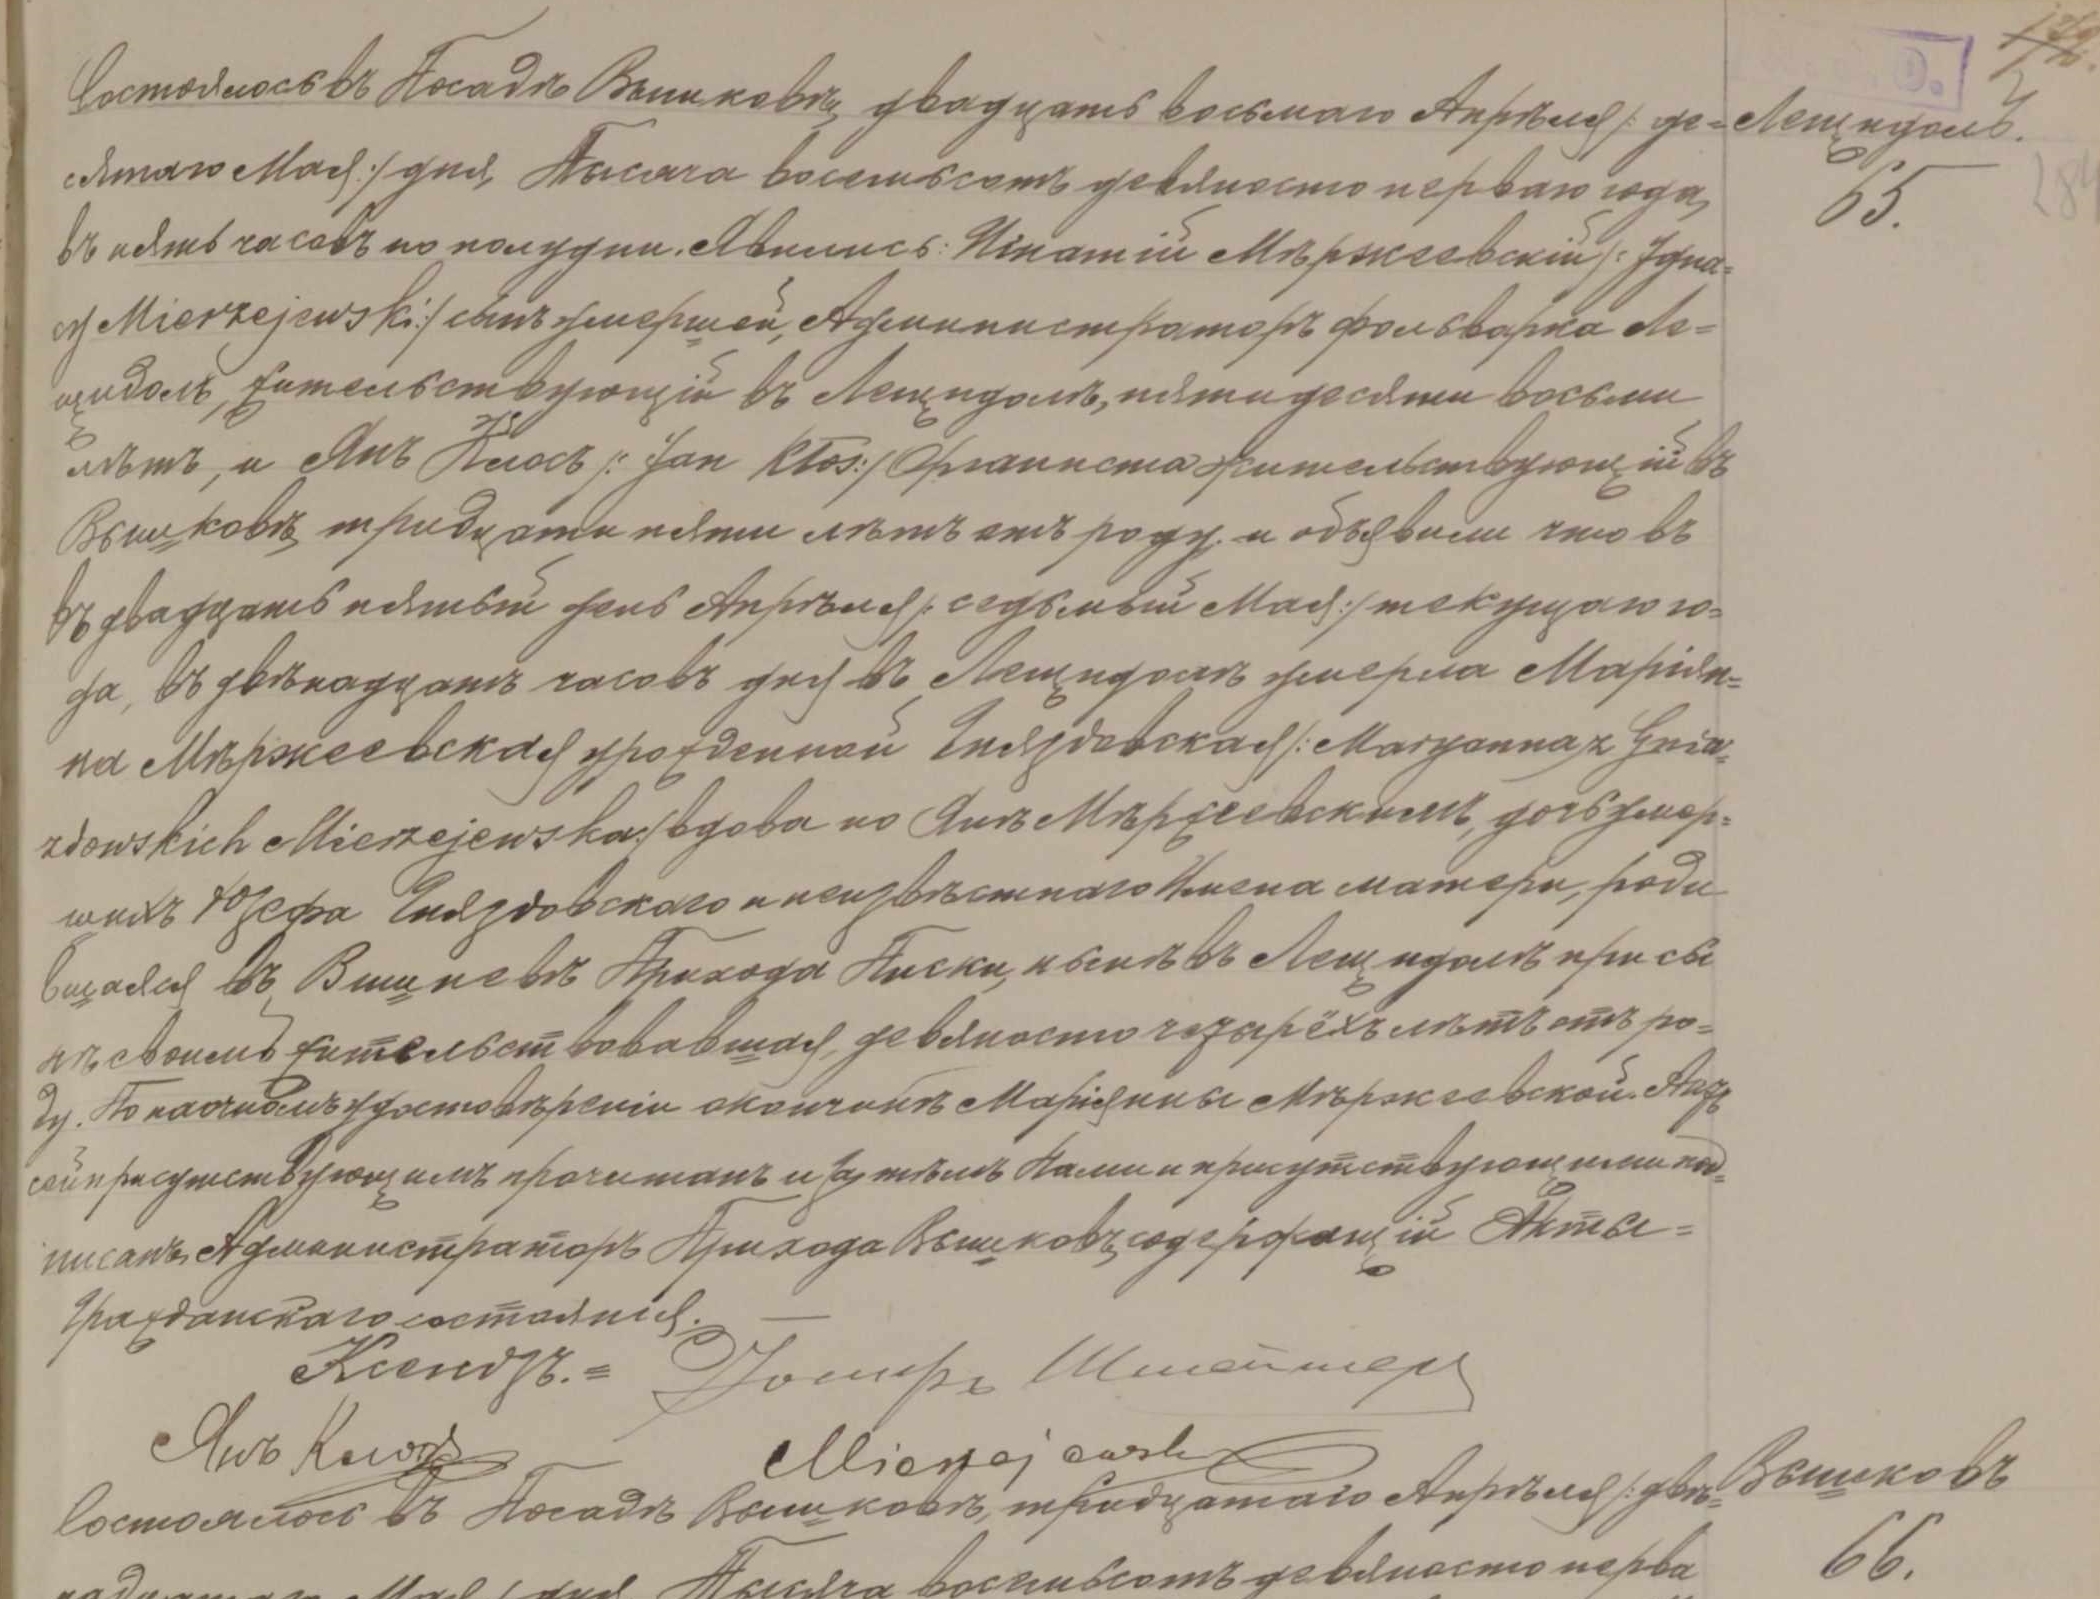 Состоялось въ Посадѣ Вышковѣ, двадцать восьмаго Апрѣля /: де= Лещидолъ.
сятаго Мая :/ дня, Тысяча восемьсотъ девяносто перваго года, 65.
въ пять часовъ по полудни. Явились: Игнатій Мѣржеевскій /: Igna=
cy Mierzejewski :/ сынъ умершей, Администраторъ фольварка Ле=
щидолъ, жительствующій въ Лещидолѣ, пятидесяти восьми
лѣтъ, и Янъ Клосъ /: Jan Kłos :/ Органиста жительствующій въ
Вышковѣ тридцати пяти лѣтъ отъ роду. и объявили что въ
въ двадцать пятый день Апрѣля /: седьмый Мая :/ текущаго го=
да, въ двѣнадцать часовъ дня въ Лещидолѣ умерла Маріян=
на Мѣржеевская урожденной Гняздовская /: Maryanna z Gnia=
zdowskich Mierzejewska :/ вдова по Янѣ Мѣржеевскимъ, дочь умер=
шихъ Юзефа Гняздовскаго и неизвѣстнаго Имена матери, роди
вшаяся въ Вишневѣ Прихода Писки, и въ Лещидолѣ при сы
нѣ своимъ жительствовавшая, девяносто четырёхъ лѣтъ отъ ро=
ду. По насчномъ удостовѣреніи окончинѣ Маріянны Мѣржеевской. Актъ
сей присутствующимъ прочитанъ и за тѣмъ Нами и присутствующими под=
писанъ. Администраторъ Прихода Вышковъ, содержащій Акты=
Гражданскаго состоянія.
Ксендзъ.=
Янъ Клосъ Mierzejewski
Состоялось въ Посадѣ Вышковѣ, тридцатаго Апрѣля /: двѣ= Вышковъ
надцатаго Мая :/ дня Тысяча восемьсотъ девяносто перва 66.